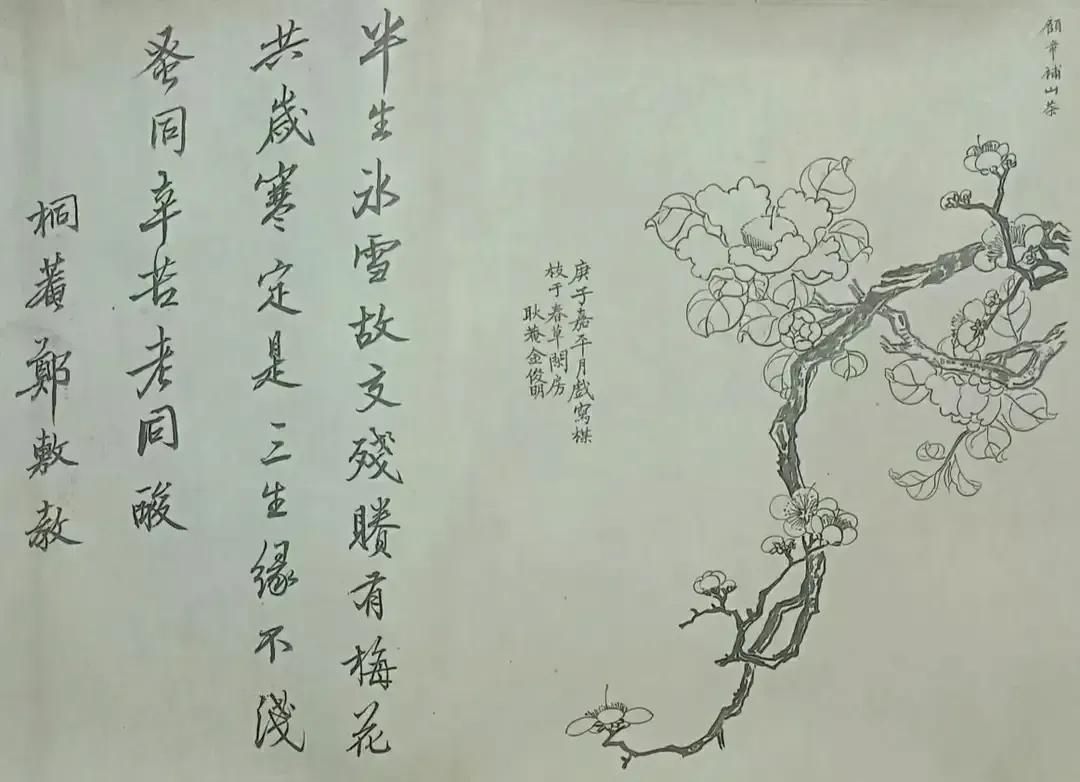 顧韋補山茶
庚子嘉平月戲寫楳
枝于春草閒房
耿菴金俊明
半生氷雪故交殘賸有梅花
共歲寒定是三生緣不淺
蚤同辛苦老同酸
桐菴鄭敷教